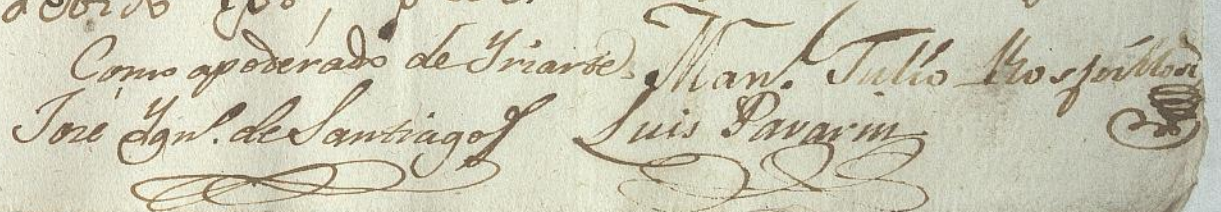 Como apoderado de Yriarte Man.l Tulio Rospillosi
José Ygn.o de Santiago Luis Pavarin